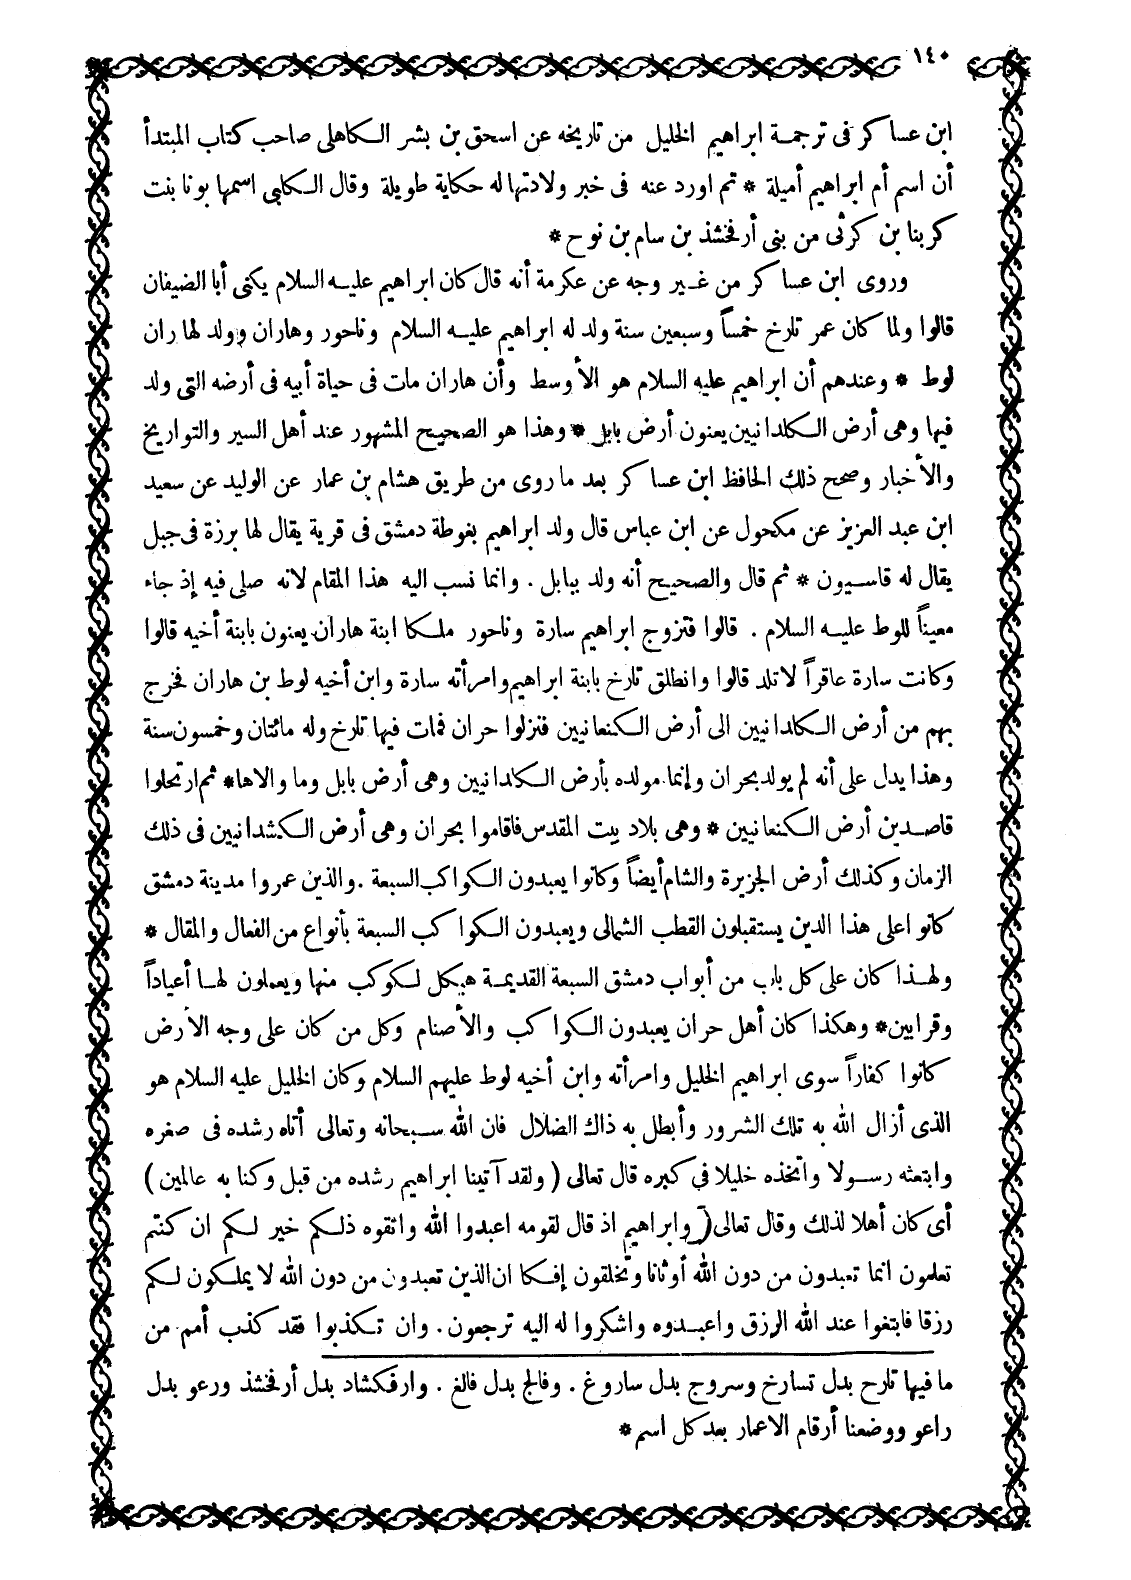 ١٤٠
ابن عساكر فى ترجمة ابراهيم الخليل من تاريخه عن اسحق بن بشر الكاهلى صاحب كتاب المبتدأ
أن اسم أم ابراهيم أميلة * ثم اورد عنه فى خبر ولادتها له حكاية طويلة وقال الكلبى اسمها بونا بنت
كربنا بن كرثى من بنى أرفخشذ بن سام بن نوح *
وروى ابن عساكر من غير وجه عن عكرمة أنه قال كان ابراهيم عليه السلام يكنى أبا الضيفان
قالوا ولما كان عمر تارخ خمساً وسبعين سنة ولد له ابراهيم عليه السلام وناحور وهاران وولد لهاران
لوط * وعندهم أن ابراهيم عليه السلام هو الأوسط وأن هاران مات فى حياة أبيه فى أرضه التى ولد
فيها وهى أرض الكلدانيين يعنون أرض بابل * وهذا هو الصحيح المشهور عند أهل السير والتواريخ
والأخبار وصحح ذلك الحافظ ابن عساكر بعد ما روى من طريق هشام بن عمار عن الوليد عن سعيد
ابن عبد العزيز عن مكحول عن ابن عباس قال ولد ابراهيم بغوطة دمشق فى قرية يقال لها برزة فى جبل
يقال له قاسيون * ثم قال والصحيح أنه ولد ببابل . وانما نسب اليه هذا المقام لانه صلى فيه إذ جاء
معيناً للوط عليه السلام . قالوا فتزوج ابراهيم سارة وناحور ملكا ابنة هاران يعنون بابنة أخيه قالوا
وكانت سارة عاقراً لا تلد قالوا وانطلق تارخ بابنة ابراهيم وامرأته سارة وابن أخيه لوط بن هاران فخرج
بهم من أرض الكلدانيين الى أرض الكنعانيين فنزلوا حران فمات فيها تارخ وله مائتان وخمسون سنة
وهذا يدل على أنه لم يولد بحران وإنما مولده بأرض الكلدانيين وهى أرض بابل وما والاها * ثم ارتحلوا
قاصدين أرض الكنعانيين * وهى بلاد بيت المقدس فاقاموا بحران وهى أرض الكشدانيين فى ذلك
الزمان وكذلك أرض الجزيرة والشام أيضاً وكانوا يعبدون الكواكب السبعة . والذين عمروا مدينة دمشق
كانوا على هذا الدين يستقبلون القطب الشمالى ويعبدون الكواكب السبعة بأنواع من الفعال والمقال *
ولهذا كان على كل باب من أبواب دمشق السبعة القديمة هيكل لكوكب منها ويعملون لها أعياداً
وقرابين * وهكذا كان أهل حران يعبدون الكواكب والأصنام وكل من كان على وجه الارض
كانوا كفاراً سوى ابراهيم الخليل وامرأته وابن أخيه لوط عليهم السلام وكان الخليل عليه السلام هو
الذى أزال الله به تلك الشرور وأبطل به ذاك الضلال فان الله سبحانه وتعالى أتاه رشده فى صغره
وابتعثه رسولا واتخذه خليلا في كبره قال تعالى ( ولقد آتينا ابراهيم رشده من قبل وكنا به عالمين )
أى كان أهلا لذلك وقال تعالى ( وابراهيم اذ قال لقومه اعبدوا الله واتقوه ذلكم خير لكم ان كنتم
تعلمون انما تعبدون من دون الله أوثانا وتخلقون إفكا ان الذين تعبدون من دون الله لا يملكون لكم
رزقا فابتغوا عند الله الرزق واعبدوه واشكروا له اليه ترجعون . وان تكذبوا فقد كذب أمم من
ما فيها تارح بدل تسارخ وسروج بدل ساروغ . وفالج بدل فالغ . وارفكشاد بدل أرفخشذ ورعو بدل
راعو ووضعنا أرقام الاعمار بعد كل اسم *